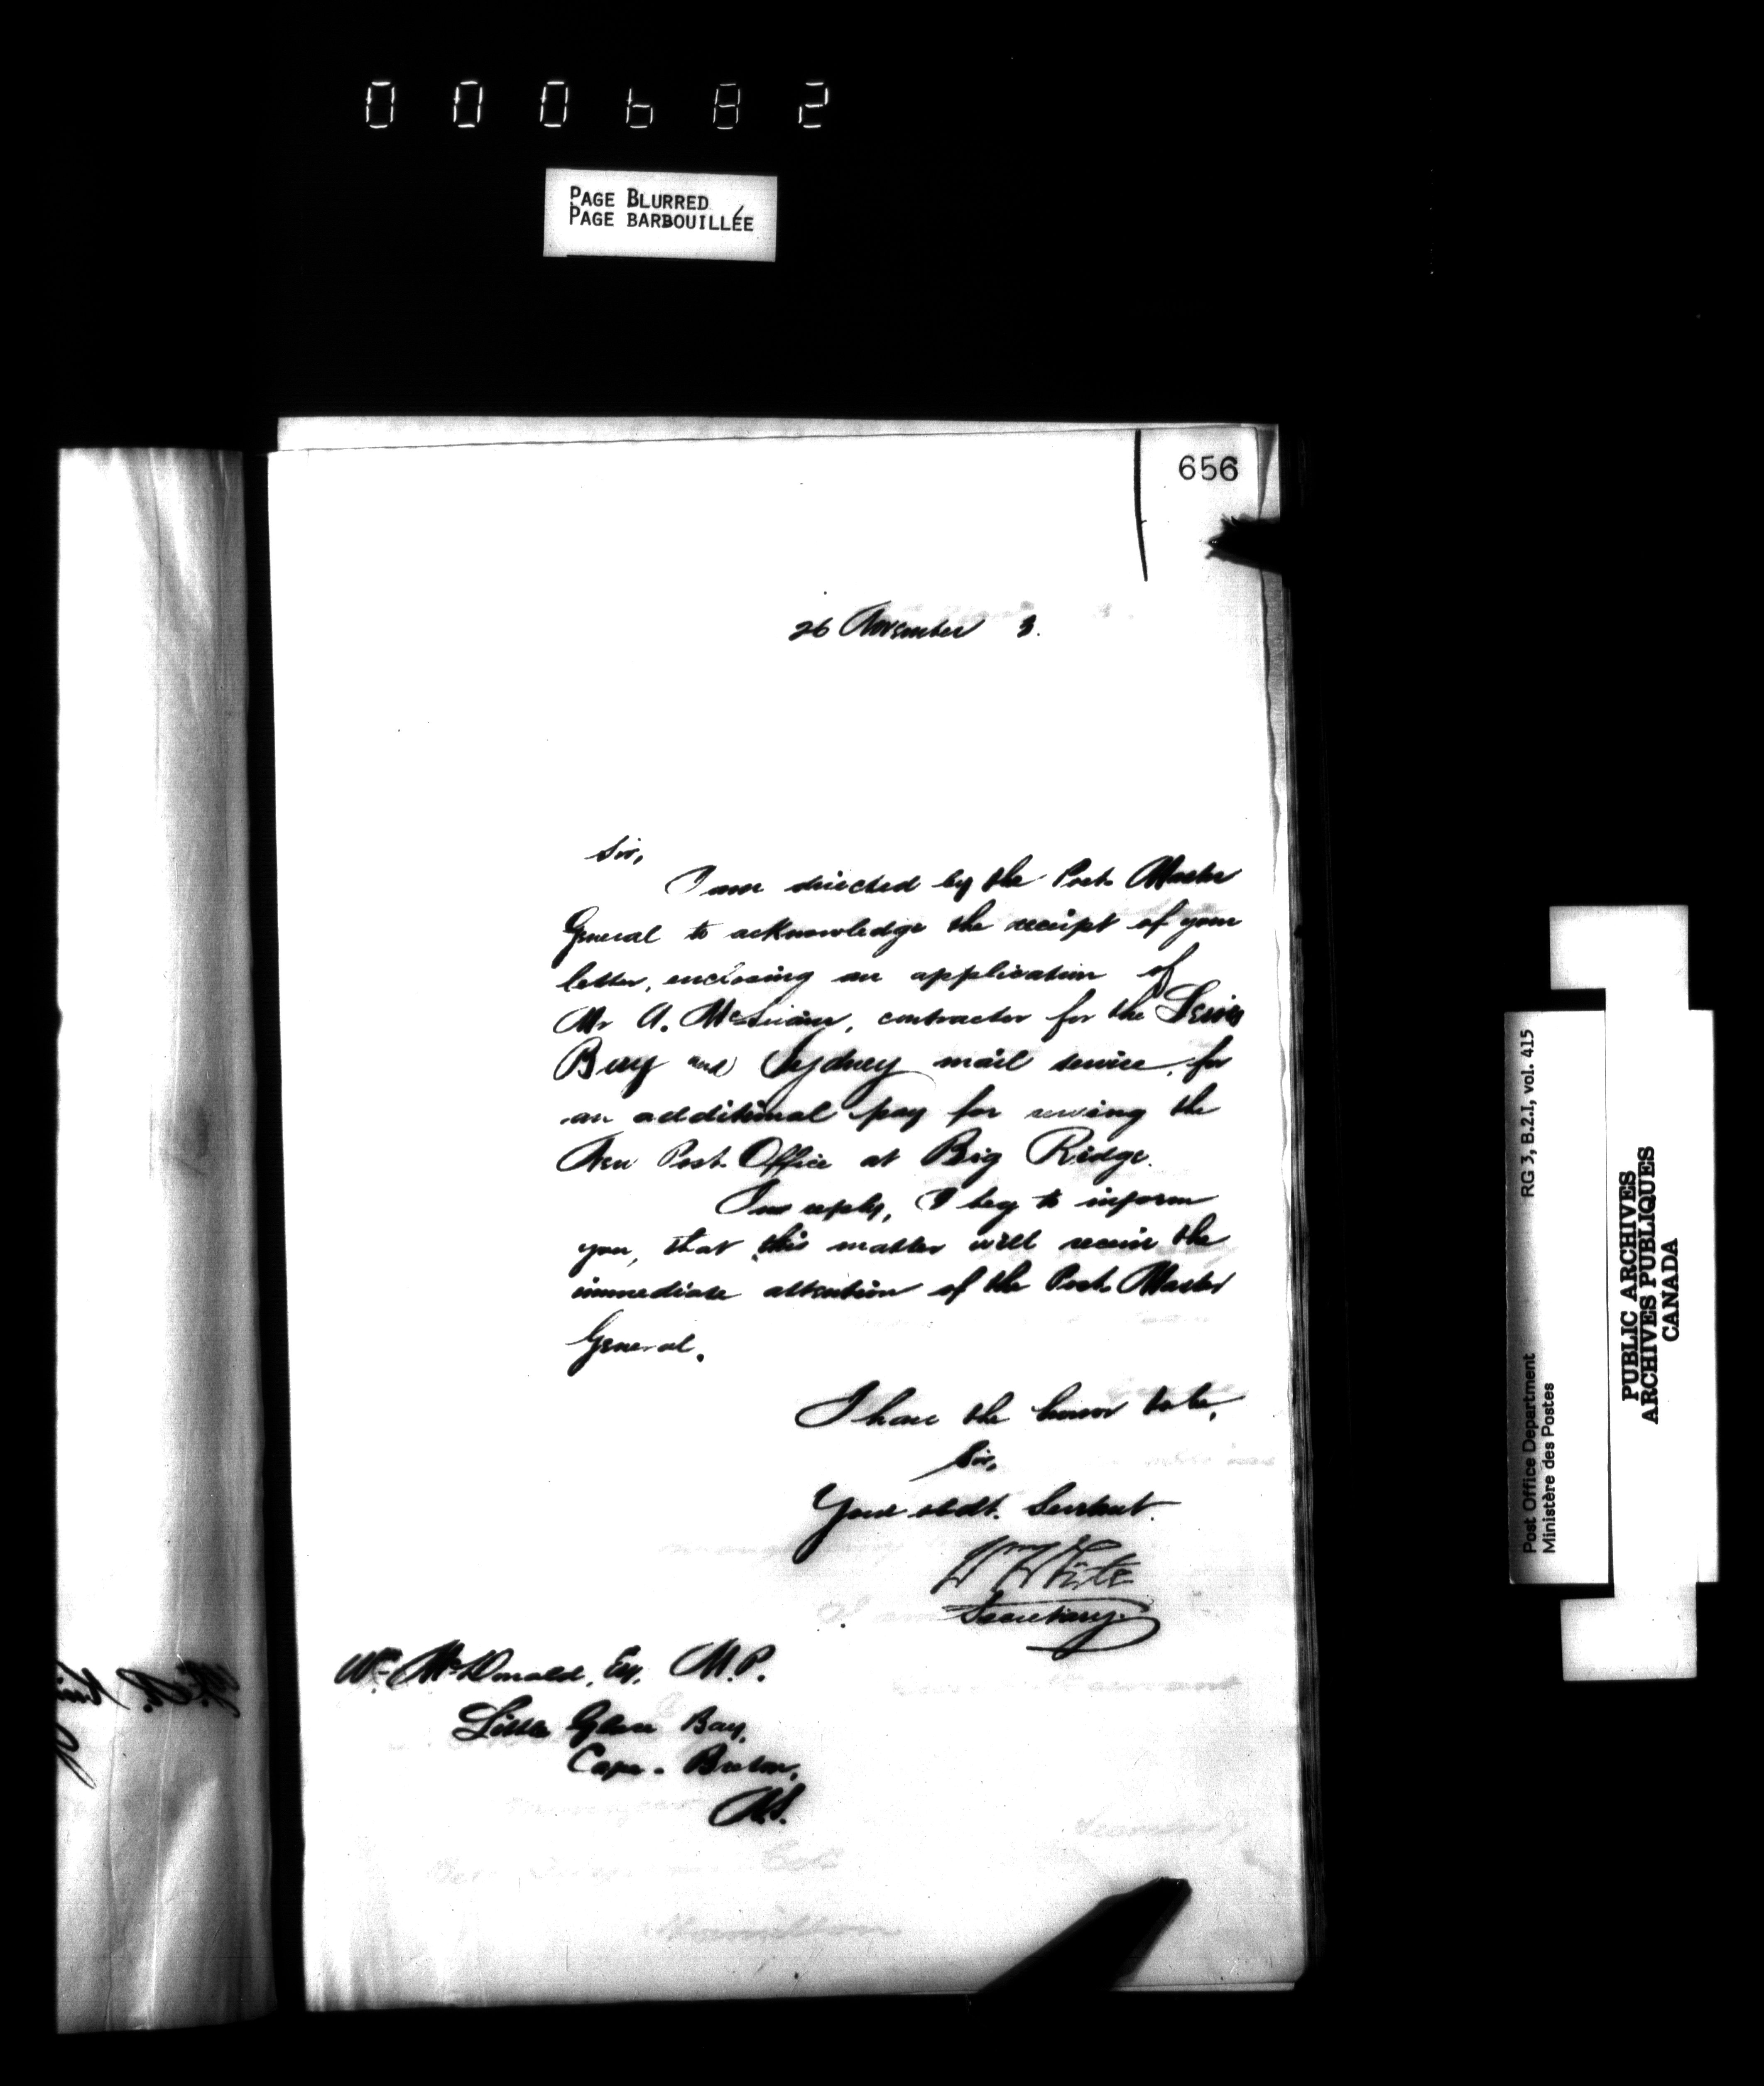 000682
PAGE BLURRED
PAGE BARBOUILLÉE
656
26 November 3.
Sir,
I am directed by the Post Master
General to acknowledge the receipt of your
letter, enclosing an application of
Mr A. , contractor for the Lewis
Bay and Sydney mail service, for
an additional pay for serving the
New Post Office at Big Ridge.
In reply, I beg to inform
you, that this matter will receive the
immediate attention of the Post Master
General.
I have the honor to be,
Sir,
Your obdt. Servant.
Wm White
Secretary.
Wm McDonald, Esq, M.P.
Little Glace Bay,
Cape-Breton,
N.S.
Secretary
Hamilton
Post Office Department RG 3, B.2.I, vol. 415
Ministère des Postes
PUBLIC ARCHIVES
ARCHIVES PUBLIQUES
CANADA